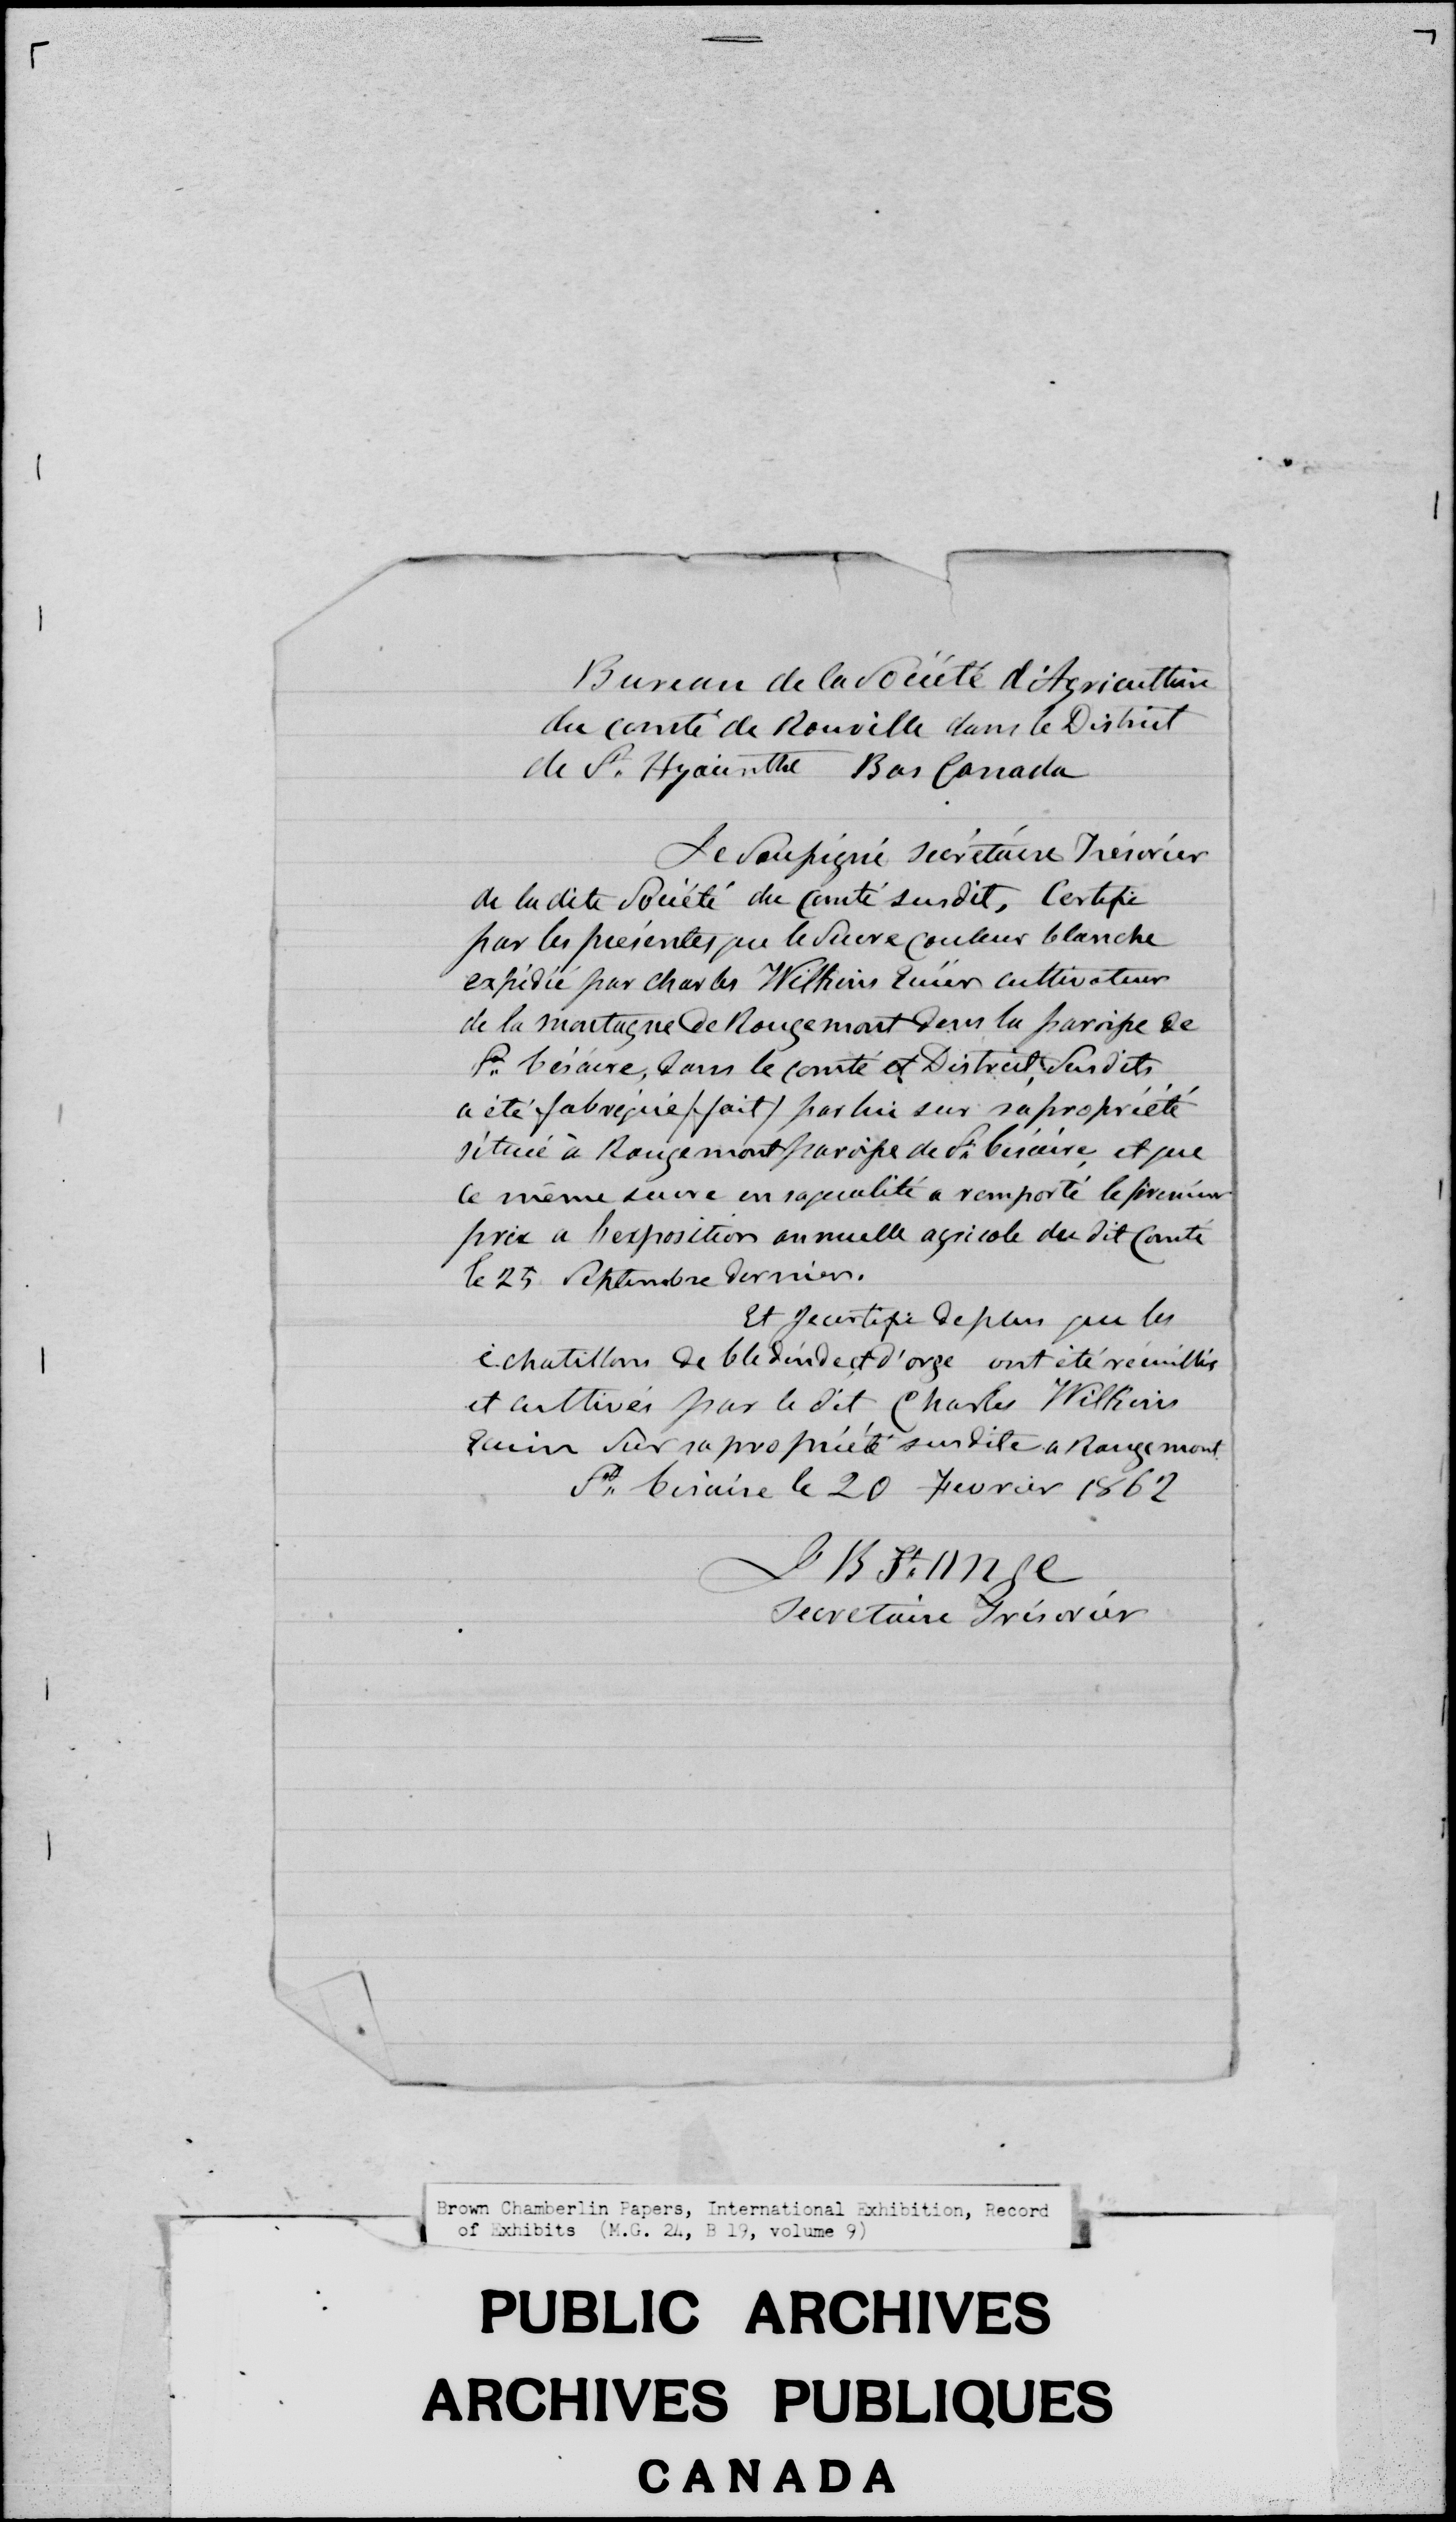 Bureau de la Société d'Agriculture
du comté de Rouville dans le District
de St. Hyacinthe Bas Canada
Je Soussigné secrétaire Trésorier
de la dite Société du Comté susdit, Certifie
par les présentes que le Sucre couleur blanche
expédié par Charles Wilkins cultivateur
de la montagne De Rougemont Dans la paroisse de
St. Césaire, Dans le comté et District, Susdits
a été fabriqué (fait) par lui sur sa propriété
située à Rougemont paroisse de St. Césaire, et que
ce même sucre en sa qualité a remporté le premier
prix a l'exposition annuelle agricole du dit Comté
le 25 Septembre Dernier.
Et Je certifie De plus que les
échatillons De bledinde et d'orge ont été récuillis
et cultivés par le dit Charles Wilkins
Sur sa propriété susdite a Rougemont
St. Césaire le 20 Fevrier 1862
J B St. Ange
Secretaire Trésorier
Brown Chamberlin Papers, International Exhibition, Record
of Exhibits (M.G. 24, B 19, volume 9)
PUBLIC ARCHIVES
ARCHIVES PUBLIQUES
CANADA